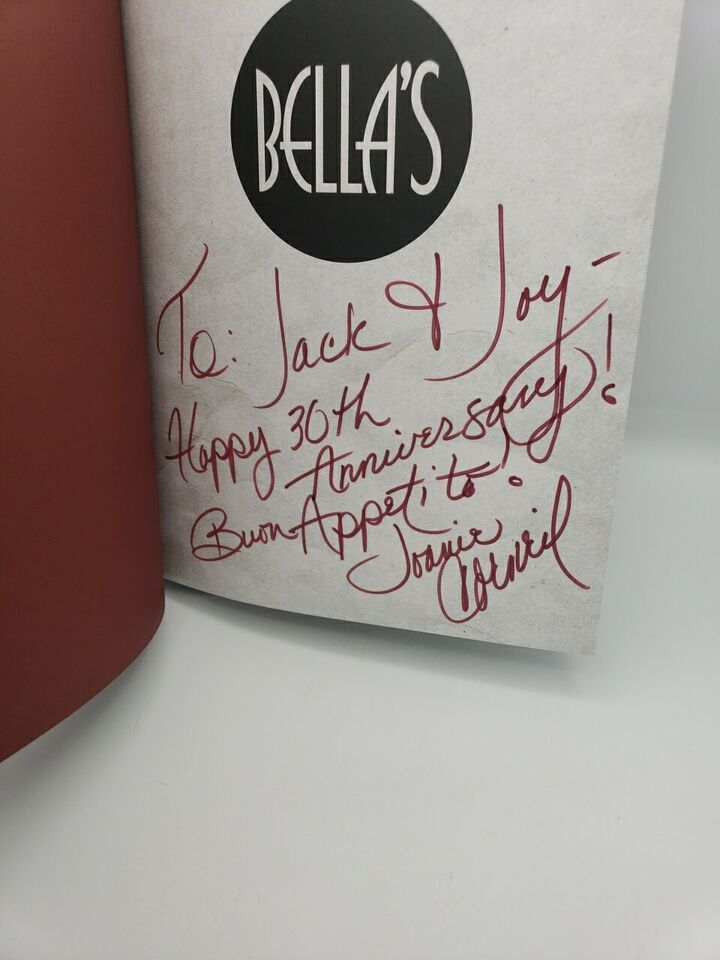 BELLA'S
To: Jack & Joy-
Happy 30th
Anniversary!
Buon Appetito!
Joanie